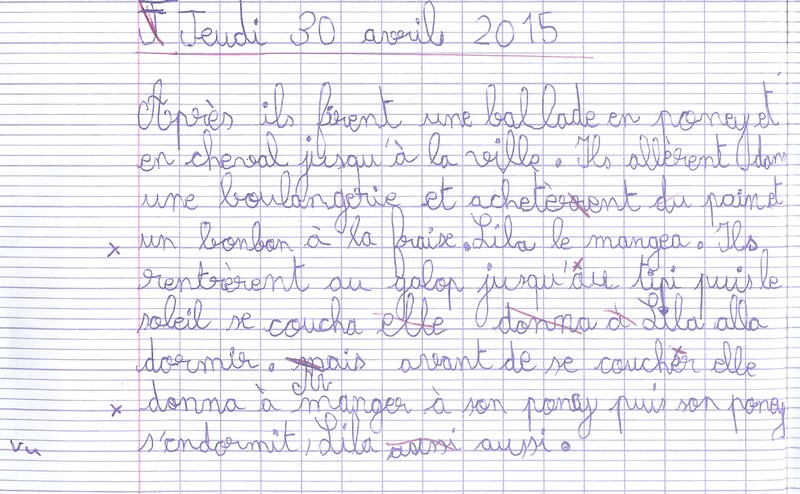 Jeudi 30 avril 2015
Après ils firent une ballade en poney et
en cheval jusqu'à la ville. Ils allèrent dans
une boulangerie et achetèrent du pain et
un bonbon à la fraise. Lila le mangea. Ils
rentrèrent au galop jusqu'au tipi puis le
soleil se coucha elle donna à Lila alla
dormir. Mais avant de se coucher elle
donna à manger à son poney puis son poney
s'endormit, Lila aussi aussi.
vu